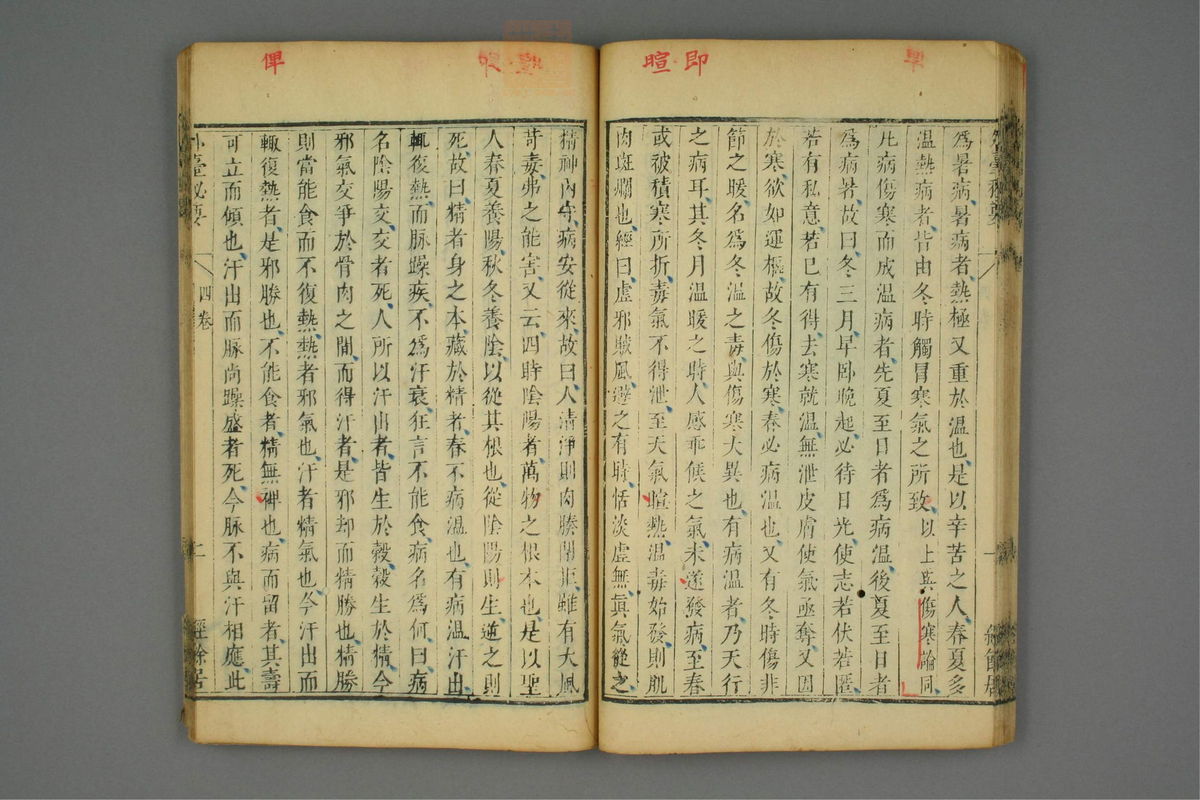 即暄
爲暑病暑病者熱極又重於溫也是以辛苦之人春夏多
溫熱病者皆由冬時觸冒寒氣之所致以上與傷寒論同
凡病傷寒而成溫病者先夏至日者爲病溫後夏至日者
爲病暑故曰冬三月早卧晚起必待日光使志若伏若匿
若有私意若已有得去寒就溫無泄皮膚使氣亟奪又因
於寒欲如運樞故冬傷於寒春必病溫也又有冬時傷非
節之暖名爲冬溫之毒與傷寒大異也有病溫者乃天行
之病耳其冬月溫暖之時人感乖候之氣未遂發病至春
或被積寒所折毒氣不得泄至天氣暄熱溫毒始發則肌
肉斑爛也經曰虛邪賊風避之有時恬淡虛無眞氣從之
俾
精神內守病安從來故曰人清淨則肉腠閉拒雖有大風
苛毒弗之能害又云四時陰陽者萬物之根本也是以聖
人春夏養陽秋冬養陰以從其根也從陰陽則生逆之則
死故曰精者身之本藏於精者春不病溫也有病溫汗出
輒復熱而脉躁疾不爲汗衰狂言不能食病名爲何曰病
名陰陽交交者死人所以汗出者皆生於穀穀生於精今
邪氣交爭於骨肉之間而得汗者是邪却而精勝也精勝
則當能食而不復熱熱者邪氣也汗者精氣也今汗出而
輒復熱者是邪勝也不能食者精無神也病而留者其壽
可立而傾也汗出而脉尚躁盛者死今脉不與汗相應此
四卷